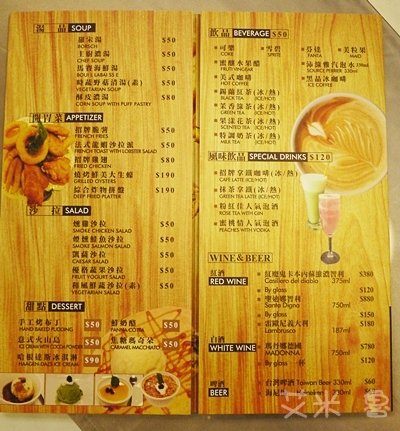 湯 品 SOUP
羅宋湯 $50
BORSCH
主廚濃湯 $50
CHEF SOUP
馬賽海鮮湯 $50
時蔬野菇清湯(素) $50
VEGETARIAN SOUP
酥皮濃湯 $80
CORN SOUP WITH PUFF PASTRY
開胃菜 APPETIZER
招牌脆薯 $50
FRENCH FRIES
法式龍蝦沙拉派 $50
FRENCH TOAST WITH LOBSTER SALAD
招牌雞翅 $80
CHICKEN WINGS
燒烤鮮美大生蠔 $190
GRILLED OYSTERS
綜合炸物拼盤 $190
DEEP FRIED PLATTER
沙 拉 SALAD
燻雞沙拉 $50
SMOKE CHICKEN SALAD
煙燻鮭魚沙拉 $50
SMOKE SALMON SALAD
凱薩沙拉 $50
CAESAR SALAD
優格蔬果沙拉 $50
FRUIT YOGURT SALAD
和風鮮蔬沙拉(素) $50
VEGETARIAN SALAD
甜點 DESSERT
手工烤布丁 $50
HAND BAKED PUDDING
鮮奶酪 $50
PANNA COTTA
意式火山島 $50
ICE CREAM WITH COCOA POWDER
焦糖瑪奇朵 $50
CARAMEL MACCHIATO
哈根達斯冰淇淋 $90
HAAGEN-DAZS ICE CREAM
飲品 BEVERAGE $50
可樂 雪碧 芬達 美粒果
COKE SPRITE FANTA MAID
蜜釀水果醋 沛綠雅氣泡水
FRUIT VINEGAR SOURCE PERRIER 330ml
美式咖啡 黑晶冰咖啡
HOT COFFEE ICE COFFEE
錫蘭紅茶(冰/熱)
BLACK TEA (ICE/HOT)
茉香綠茶(冰/熱)
GREEN TEA (ICE/HOT)
果漾花茶(冰/熱)
SCENTED TEA (ICE/HOT)
特調奶茶(冰/熱)
MILK TEA (ICE/HOT)
風味飲品 SPECIAL DRINKS $120
招牌拿鐵咖啡(冰/熱)
CAFE LATTE (ICE/HOT)
抹茶拿鐵(冰/熱)
粉紅佳人氣泡酒
ROSE TEA WITH GIN
蜜桃情人氣泡酒
PEACHES WITH VODKA
WINE&BEER
紅酒 RED WINE
紅魔鬼卡本內蘇維濃智利 $380
Casillero del diablo 375ml
By glass $120
Santa Digna 750ml
By glass $130
Lambrusco 187ml
白酒 WHITE WINE
瑪丹娜德國 $780
MADONNA 750ml
By glass 一杯 $120
啤酒 BEER
台灣啤酒 Taiwan Beer 330ml $60
海尼根 Heineken $90
艾米 魯